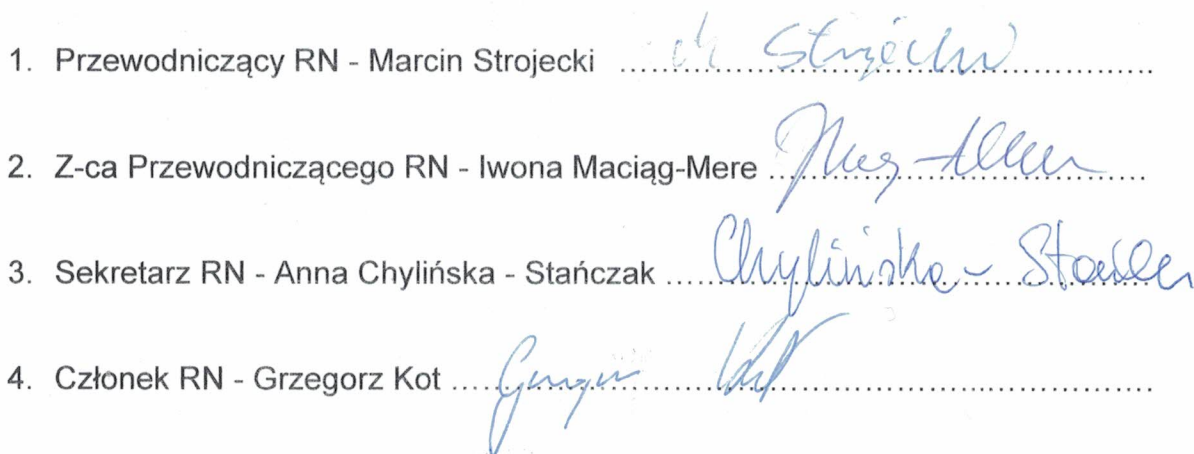 1. Przewodniczący RN - Marcin Strojecki ............................................................
2. Z-ca Przewodniczącego RN - Iwona Maciąg-Mere ..........................................
3. Sekretarz RN - Anna Chylińska - Stańczak .......Chylińska-.......
4. Członek RN - Grzegorz Kot ........................................................................